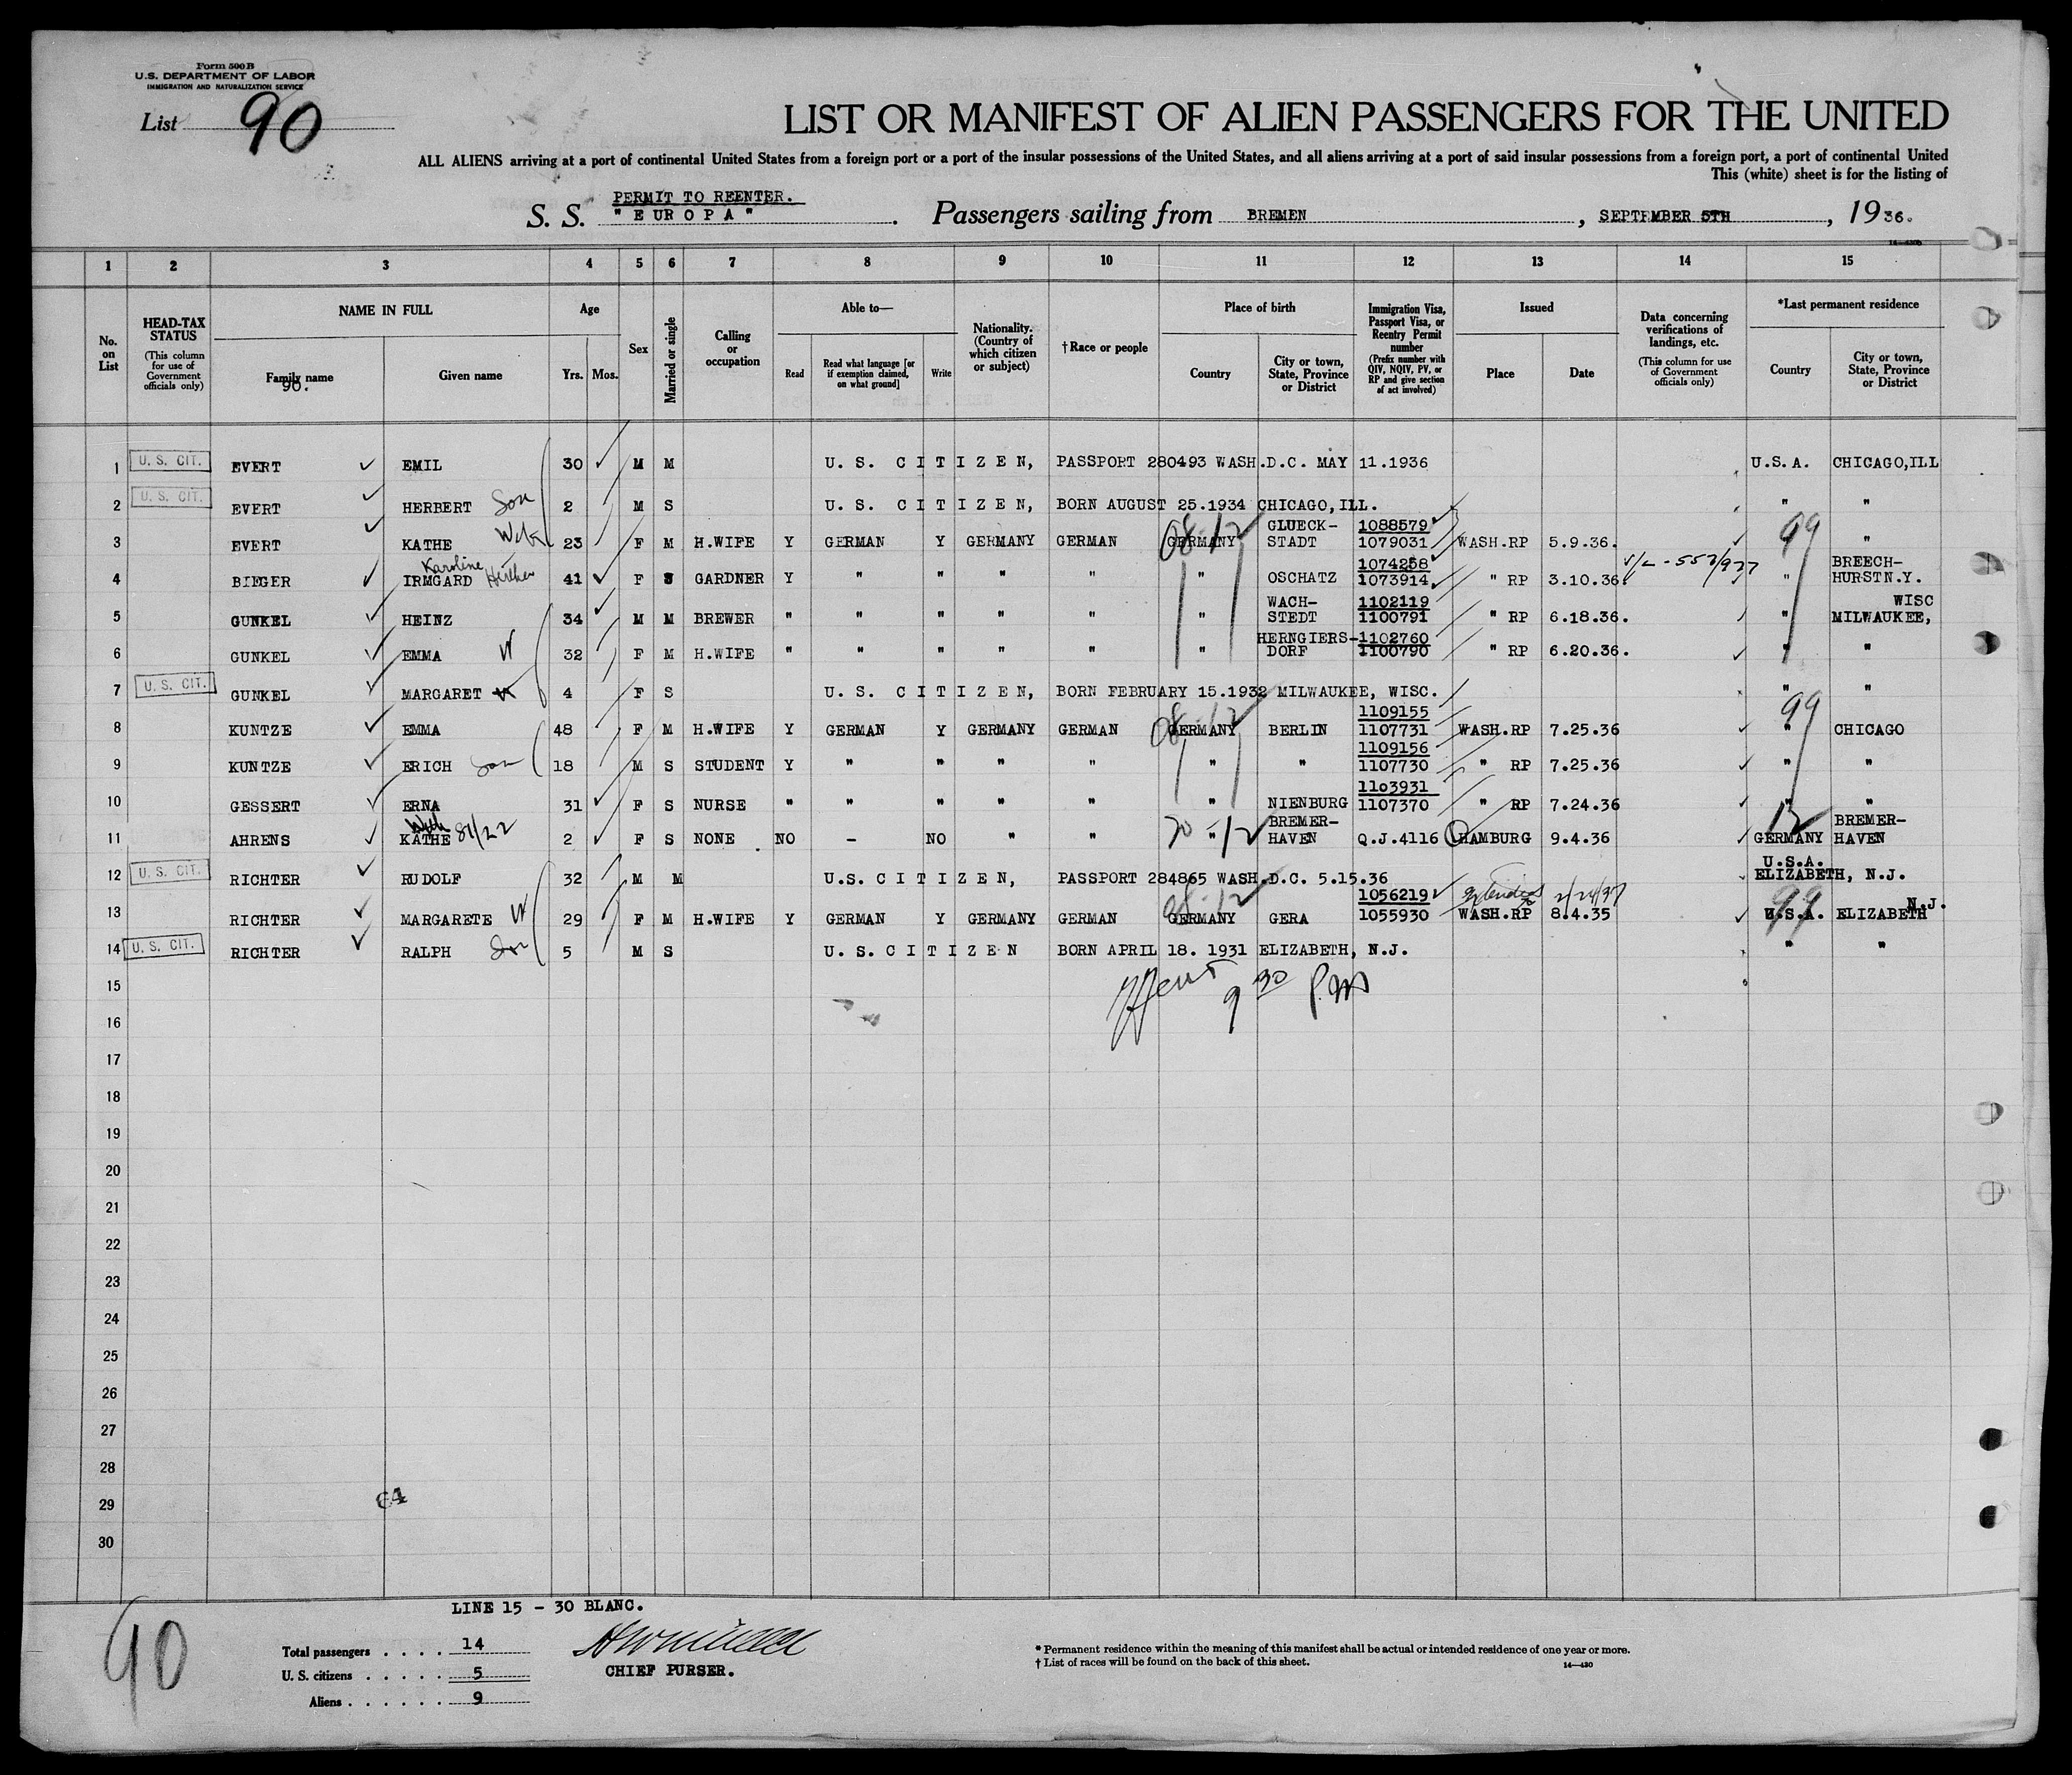 Form 500 B
U.S. DEPARTMENT OF LABOR
IMMIGRATION AND NATURALIZATION SERVICE
List 90
LIST OR MANIFEST OF ALIEN PASSENGERS FOR THE UNITED
ALL ALIENS arriving at a port of continental United States from a foreign port or a port of the insular possessions of the United States, and all aliens arriving at a port of said insular possessions from a foreign port, a port of continental United
This (white) sheet is for the listing of
PERMIT TO REENTER.
S. S. "EUROPA". Passengers sailing from BREMEN, SEPTEMBER 5TH, 1936.
1 2 3 4 5 6 7 8 9 10 11 12 13 14 15
No. on List
HEAD-TAX STATUS (This column for use of Government officials only)
NAME IN FULL
Family name
90.
Given name
Age
Yrs. Mos.
Sex
Married or single
Calling or occupation
Able to—
Read
Read what language [or if exemption claimed, on what ground]
Write
Nationality. (Country of which citizen or subject)
†Race or people
Place of birth
Country
City or town, State, Province or District
Immigration Visa, Passport Visa, or Reentry Permit number (Prefix number with QIV, NQIV, PV, or RP and give section of act involved)
Issued
Place
Date
Data concerning verifications of landings, etc. (This column for use of Government officials only)
*Last permanent residence
Country
City or town, State, Province or District
1 U. S. CIT. EVERT EMIL 30 M M U. S. CITIZEN, PASSPORT 280493 WASH.D.C. MAY 11.1936 U.S.A. CHICAGO,ILL
2 U. S. CIT. EVERT HERBERT Son 2 M S U. S. CITIZEN, BORN AUGUST 25.1934 CHICAGO,ILL. " "
3 EVERT KATHE 23 F M H.WIFE Y GERMAN Y GERMANY GERMAN GERMANY 08-12 GLUECK-STADT 1088579 1079031 WASH.RP 5.9.36. 99 "
4 BIEGER IRMGARD Karoline 41 F S GARDNER Y " " " " " OSCHATZ 1074258 1073914 " RP 3.10.36 " BREECH-HURST N.Y.
5 GUNKEL HEINZ 34 M M BREWER " " " " " " WACH-STEDT 1102119 1100791 " RP 6.18.36. " WISC MILWAUKEE,
6 GUNKEL EMMA W 32 F M H.WIFE " " " " " " HERNGIERS-DORF 1102760 1100790 " RP 6.20.36. " "
7 U. S. CIT. GUNKEL MARGARET 4 F S U. S. CITIZEN, BORN FEBRUARY 15.1932 MILWAUKEE, WISC. " "
8 KUNTZE EMMA 48 F M H.WIFE Y GERMAN Y GERMANY GERMAN GERMANY 08-12 BERLIN 1109155 1107731 WASH.RP 7.25.36 99 " CHICAGO
9 KUNTZE ERICH Son 18 M S STUDENT Y " " " " " " 1109156 1107730 " RP 7.25.36 " "
10 GESSERT ERNA 31 F S NURSE " " " " " " NIENBURG 1103931 1107370 " RP 7.24.36 " "
11 AHRENS KATHE With 81/22 2 F S NONE NO - NO " " " 20-12 BREMER-HAVEN Q.J.4116 HAMBURG 9.4.36 12 GERMANY BREMER-HAVEN
12 U. S. CIT. RICHTER RUDOLF 32 M M U.S. CITIZEN, PASSPORT 284865 WASH.D.C. 5.15.36 U.S.A. ELIZABETH, N.J.
13 RICHTER MARGARETE W 29 F M H.WIFE Y GERMAN Y GERMANY GERMAN GERMANY 08-12 GERA 1056219 1055930 WASH.RP 8.4.35 99 U.S.A. ELIZABETH N.J.
14 U. S. CIT. RICHTER RALPH Son 5 M S U. S. CITIZEN BORN APRIL 18. 1931 ELIZABETH, N.J. " "
9 30 P.M
15
16
17
18
19
20
21
22
23
24
25
26
27
28
29
30
LINE 15 - 30 BLANC.
90
Total passengers . . . . 14
U. S. citizens . . . . . 5
Aliens . . . . . . 9
CHIEF PURSER.
* Permanent residence within the meaning of this manifest shall be actual or intended residence of one year or more.
† List of races will be found on the back of this sheet.
14—430